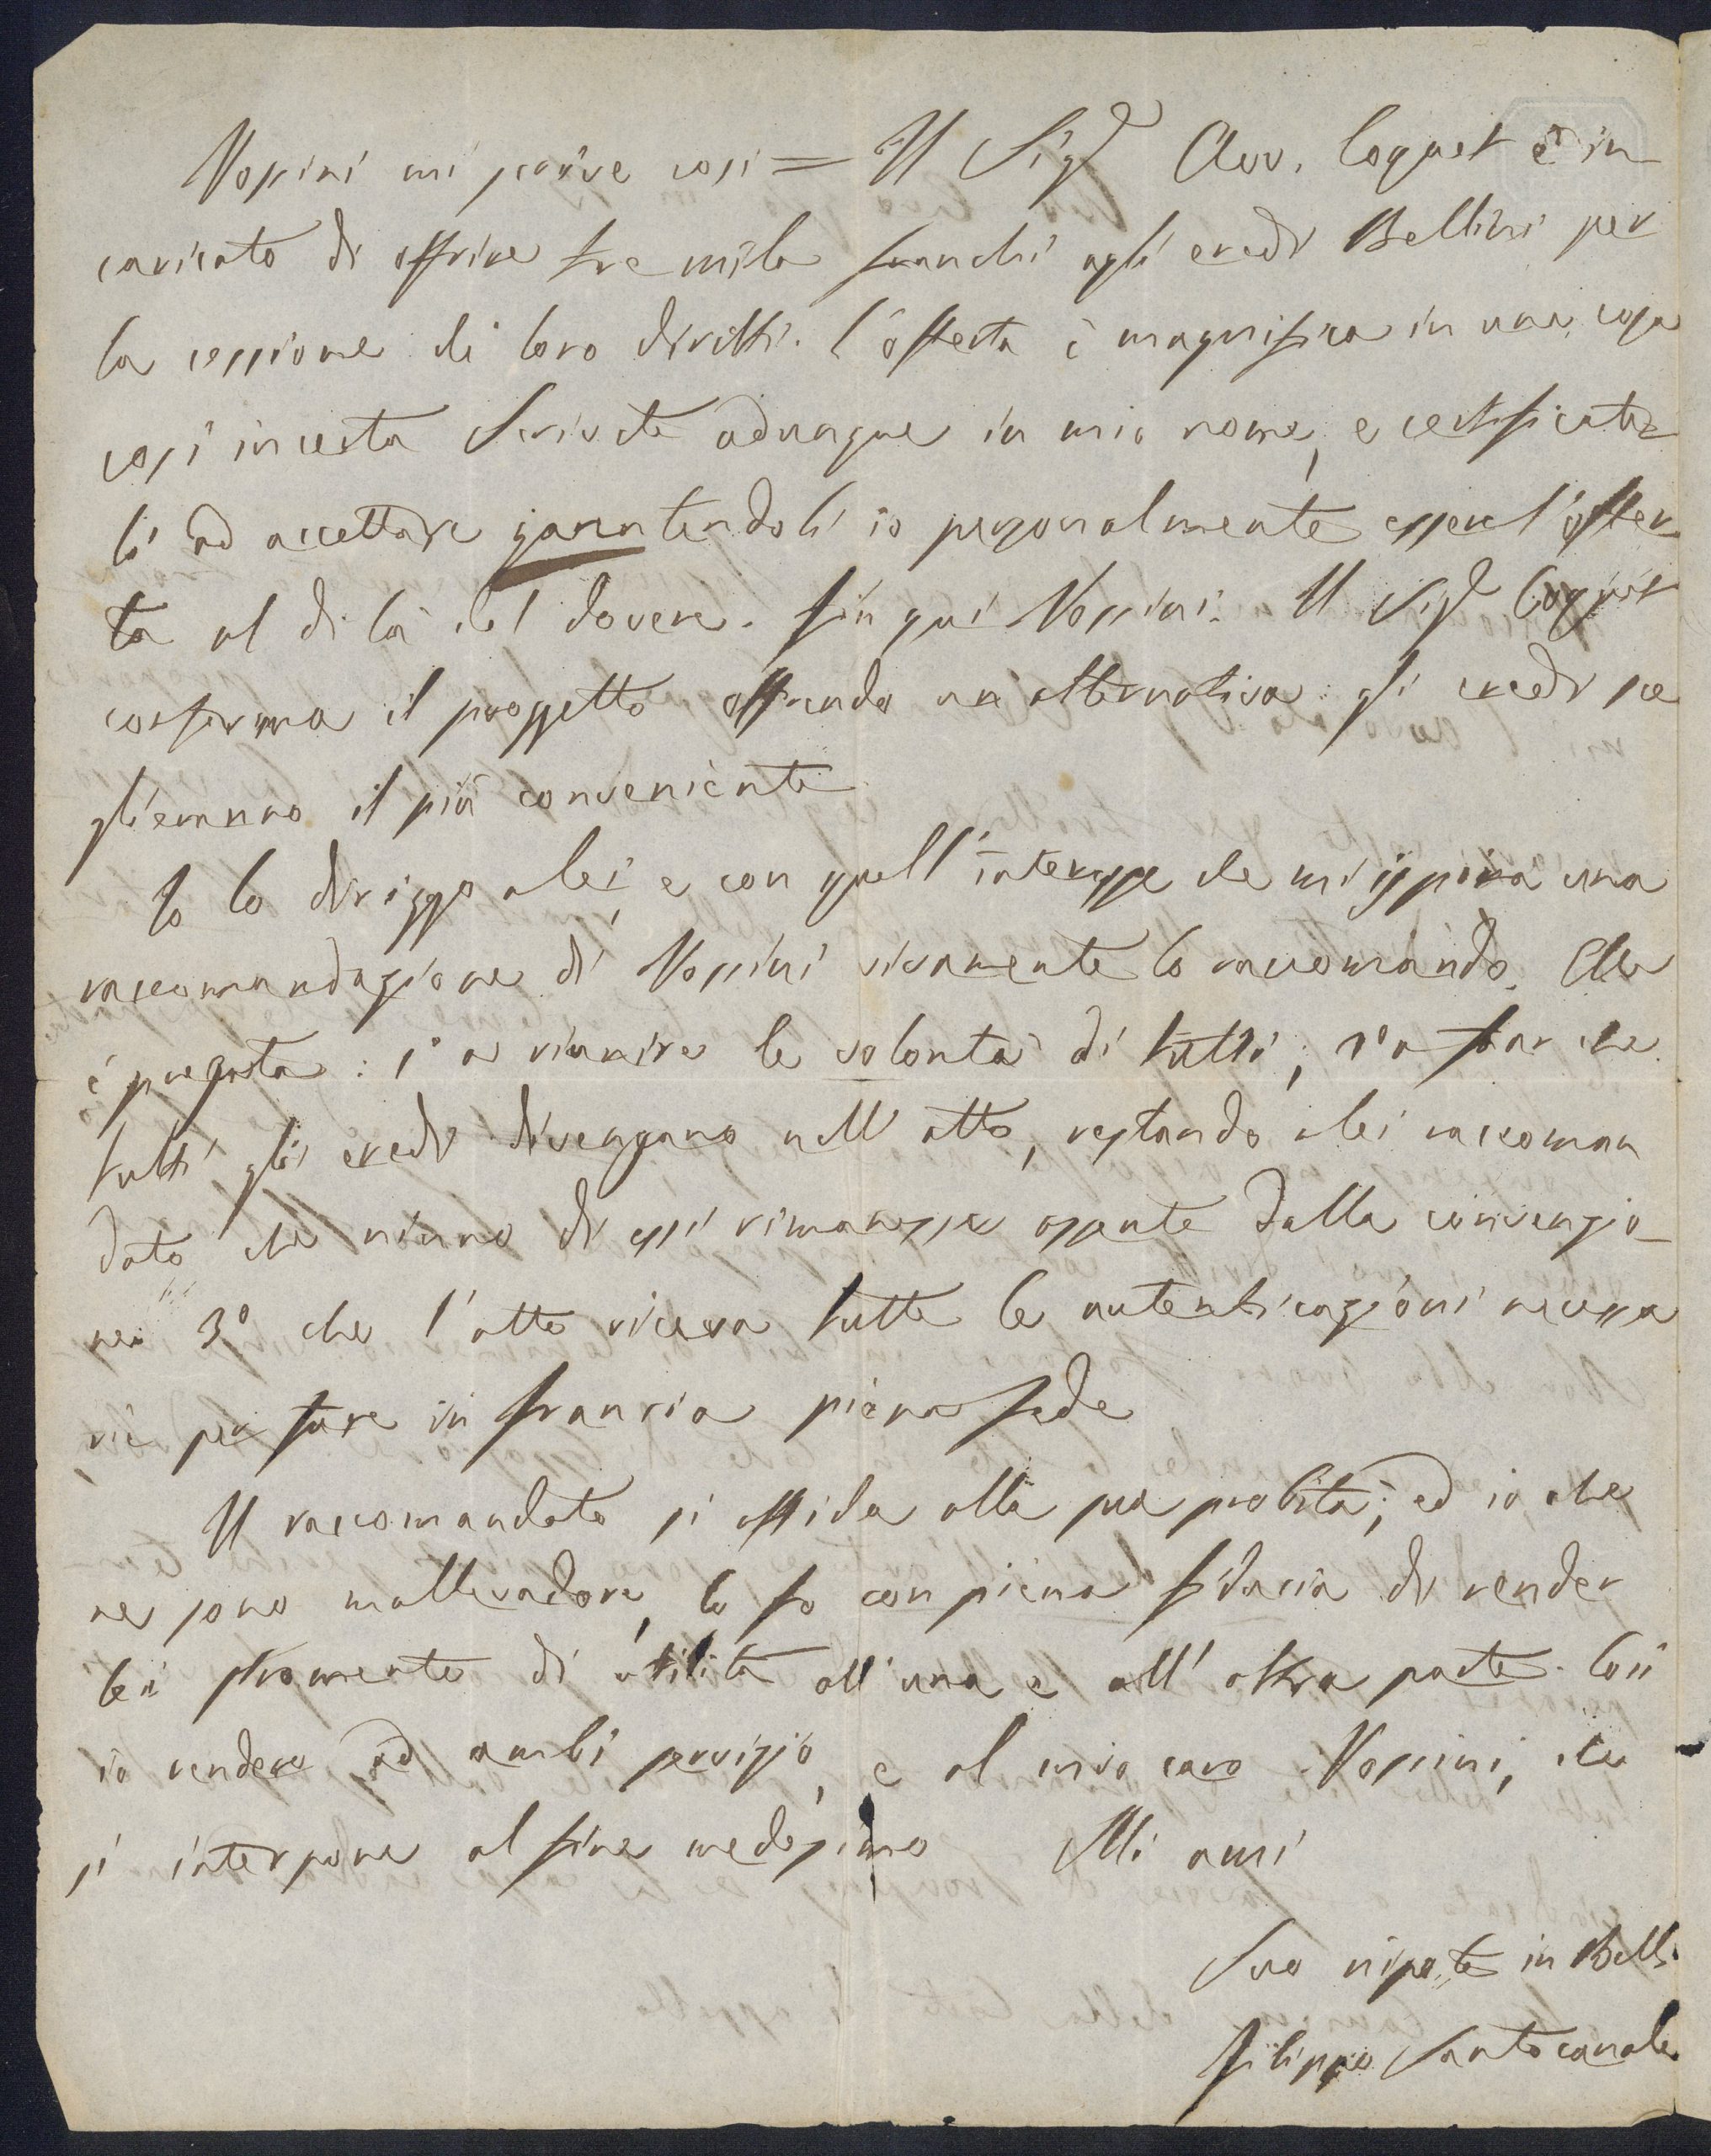 Rossini mi scrive così = Il Sigr Avv. Coquet è in
caricato di offrire tre mila franchi agli eredi Bellini per
la cessione di loro diritti. L'offerta è magnifica in una cosa
così incerta Scrivete adunque in mio nome, e certificate
li ad accettare garantendoli io personalmente essere l'offer
ta al di là del dovere. Fin qui Rossini. Il Sigr Coquet
conferma il progetto offrendo un alternativa: gli eredi sce
glieranno il più conveniente
Io lo dirizzo a lei, e con quell'interesse che mi ispira una
raccomandazione di Rossini vivamente lo raccomando. Ella
è pregata: 1° a riunire le volontà di tutti; 2° a far che
tutti gli eredi divengano nell'atto, restando a lei raccoman
dato che niuno di essi rimanesse assente dalla convenzio-
ne 3° che l'atto riceva tutte le autenticazioni necessa
rie per fare in Francia piena fede
Il raccomandato si affida alla sua probità; ed io, che
ne sono mallevadore, lo fo con piena fiducia di render
lei strumento di utilità all'una e all'altra parte. Così
io rendere ad ambi servizio, e al mio caro Rossini, che
si interpone al fine medesimo Mi ami
Suo nipote in Bell.
Filippo Santocanale